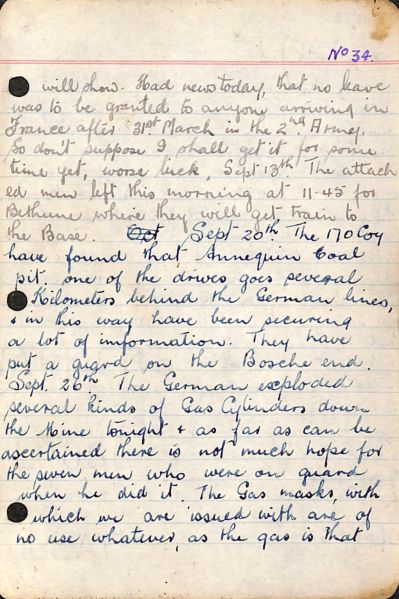 No 34.
will show. Had news today, that no leave
was to be granted to anyone arriving in
France after 31st March in the 2nd Army.
So don't suppose I shall get it for some
time yet, worse luck, Sept 13th. The attach
ed men left this morning at 11-45 for
Bethune where they will get train to
the Base. Oct Sept 20th. The 170 Coy
have found that Annequin Coal
pit, one of the drives goes several
Kilometers behind the German lines,
& in this way have been securing
a lot of information. They have
put a guard on the Bosche end.
Sept. 26th The German exploded
several kinds of Gas Cylinders down
the Mine tonight & as far as can be
ascertained there is not much hope for
the seven men who were on guard
when he did it. The Gas masks, with
which we are issued with are of
no use whatever, as the gas is that